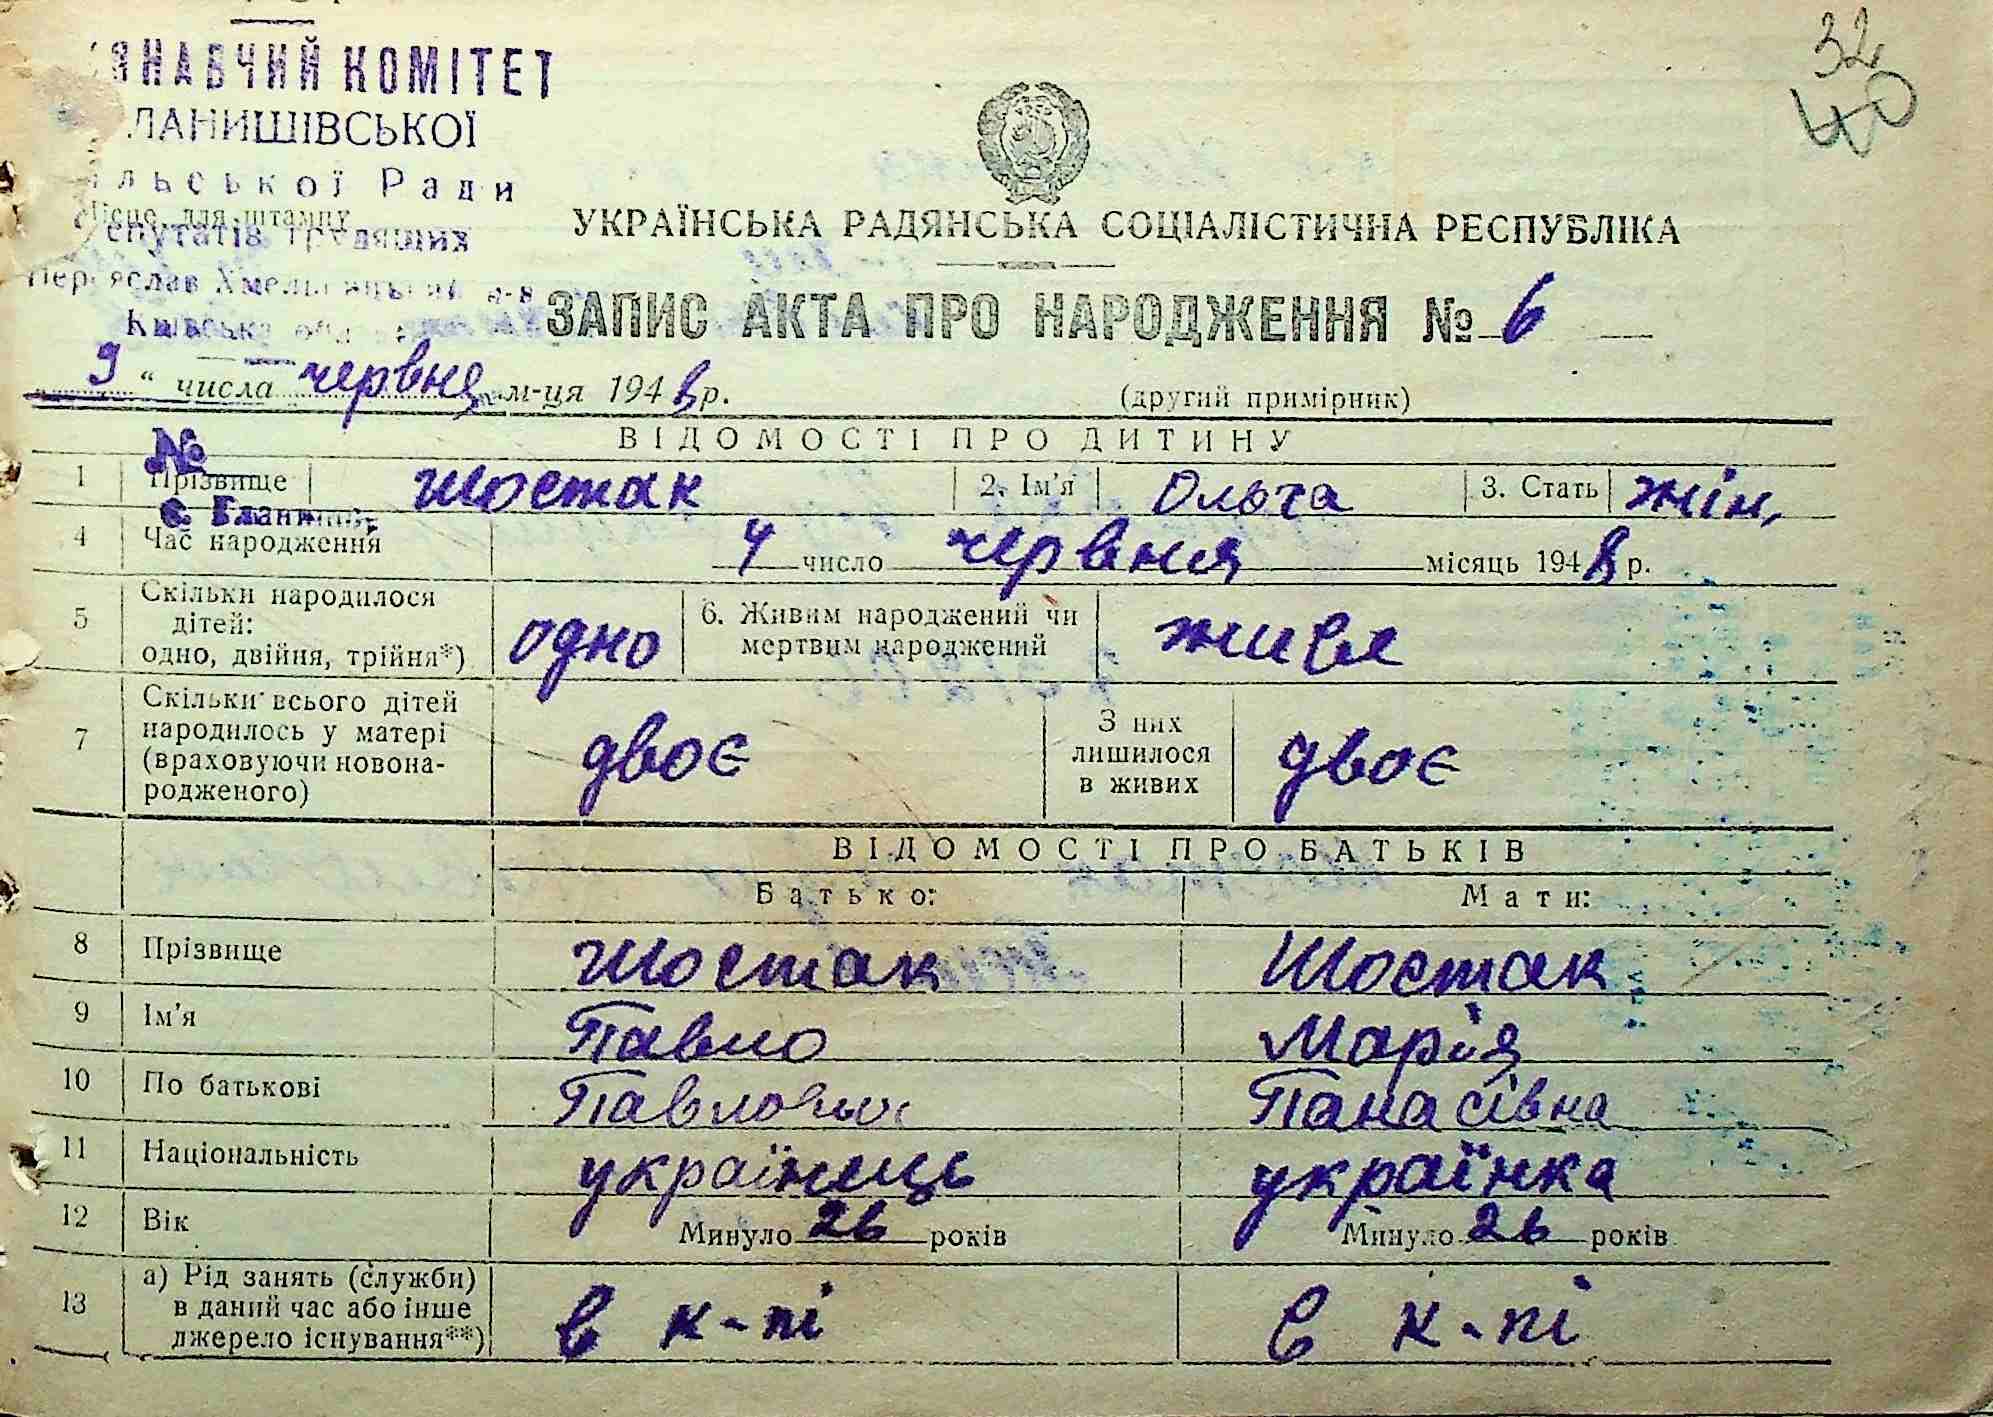 32
40
НАВЧИЙ КОМІТЕТ
ЛАНИШІВСЬКОЇ
льської Ради
Місце для штампу
епутатів трудящих
Переяслав Хмельницький р-н
Київська обл.
УКРАЇНСЬКА РАДЯНСЬКА СОЦІАЛІСТИЧНА РЕСПУБЛІКА
ЗАПИС АКТА ПРО НАРОДЖЕННЯ № 6
„ 9 “ числа червня м-ця 1948 р. (другий примірник)
ВІДОМОСТІ ПРО ДИТИНУ
№
1 Прізвище Шостак 2. Ім'я Ольга 3. Стать жін.
с. Гланишів
4 Час народження 4 число червня місяць 1948 р.
5 Скільки народилося дітей: одно, двійня, трійня*) одно 6. Живим народжений чи мертвим народжений живе
7 Скільки всього дітей народилось у матері (враховуючи новона- родженого) двоє З них лишилося в живих двоє
ВІДОМОСТІ ПРО БАТЬКІВ
Батько: Мати:
8 Прізвище Шостак Шостак
9 Ім'я Павло Марія
10 По батькові Павлович Панасівна
11 Національність українець українка
12 Вік Минуло 26 років Минуло 26 років
13 а) Рід занять (служби) в даний час або інше джерело існування**) в к-пі в к-пі